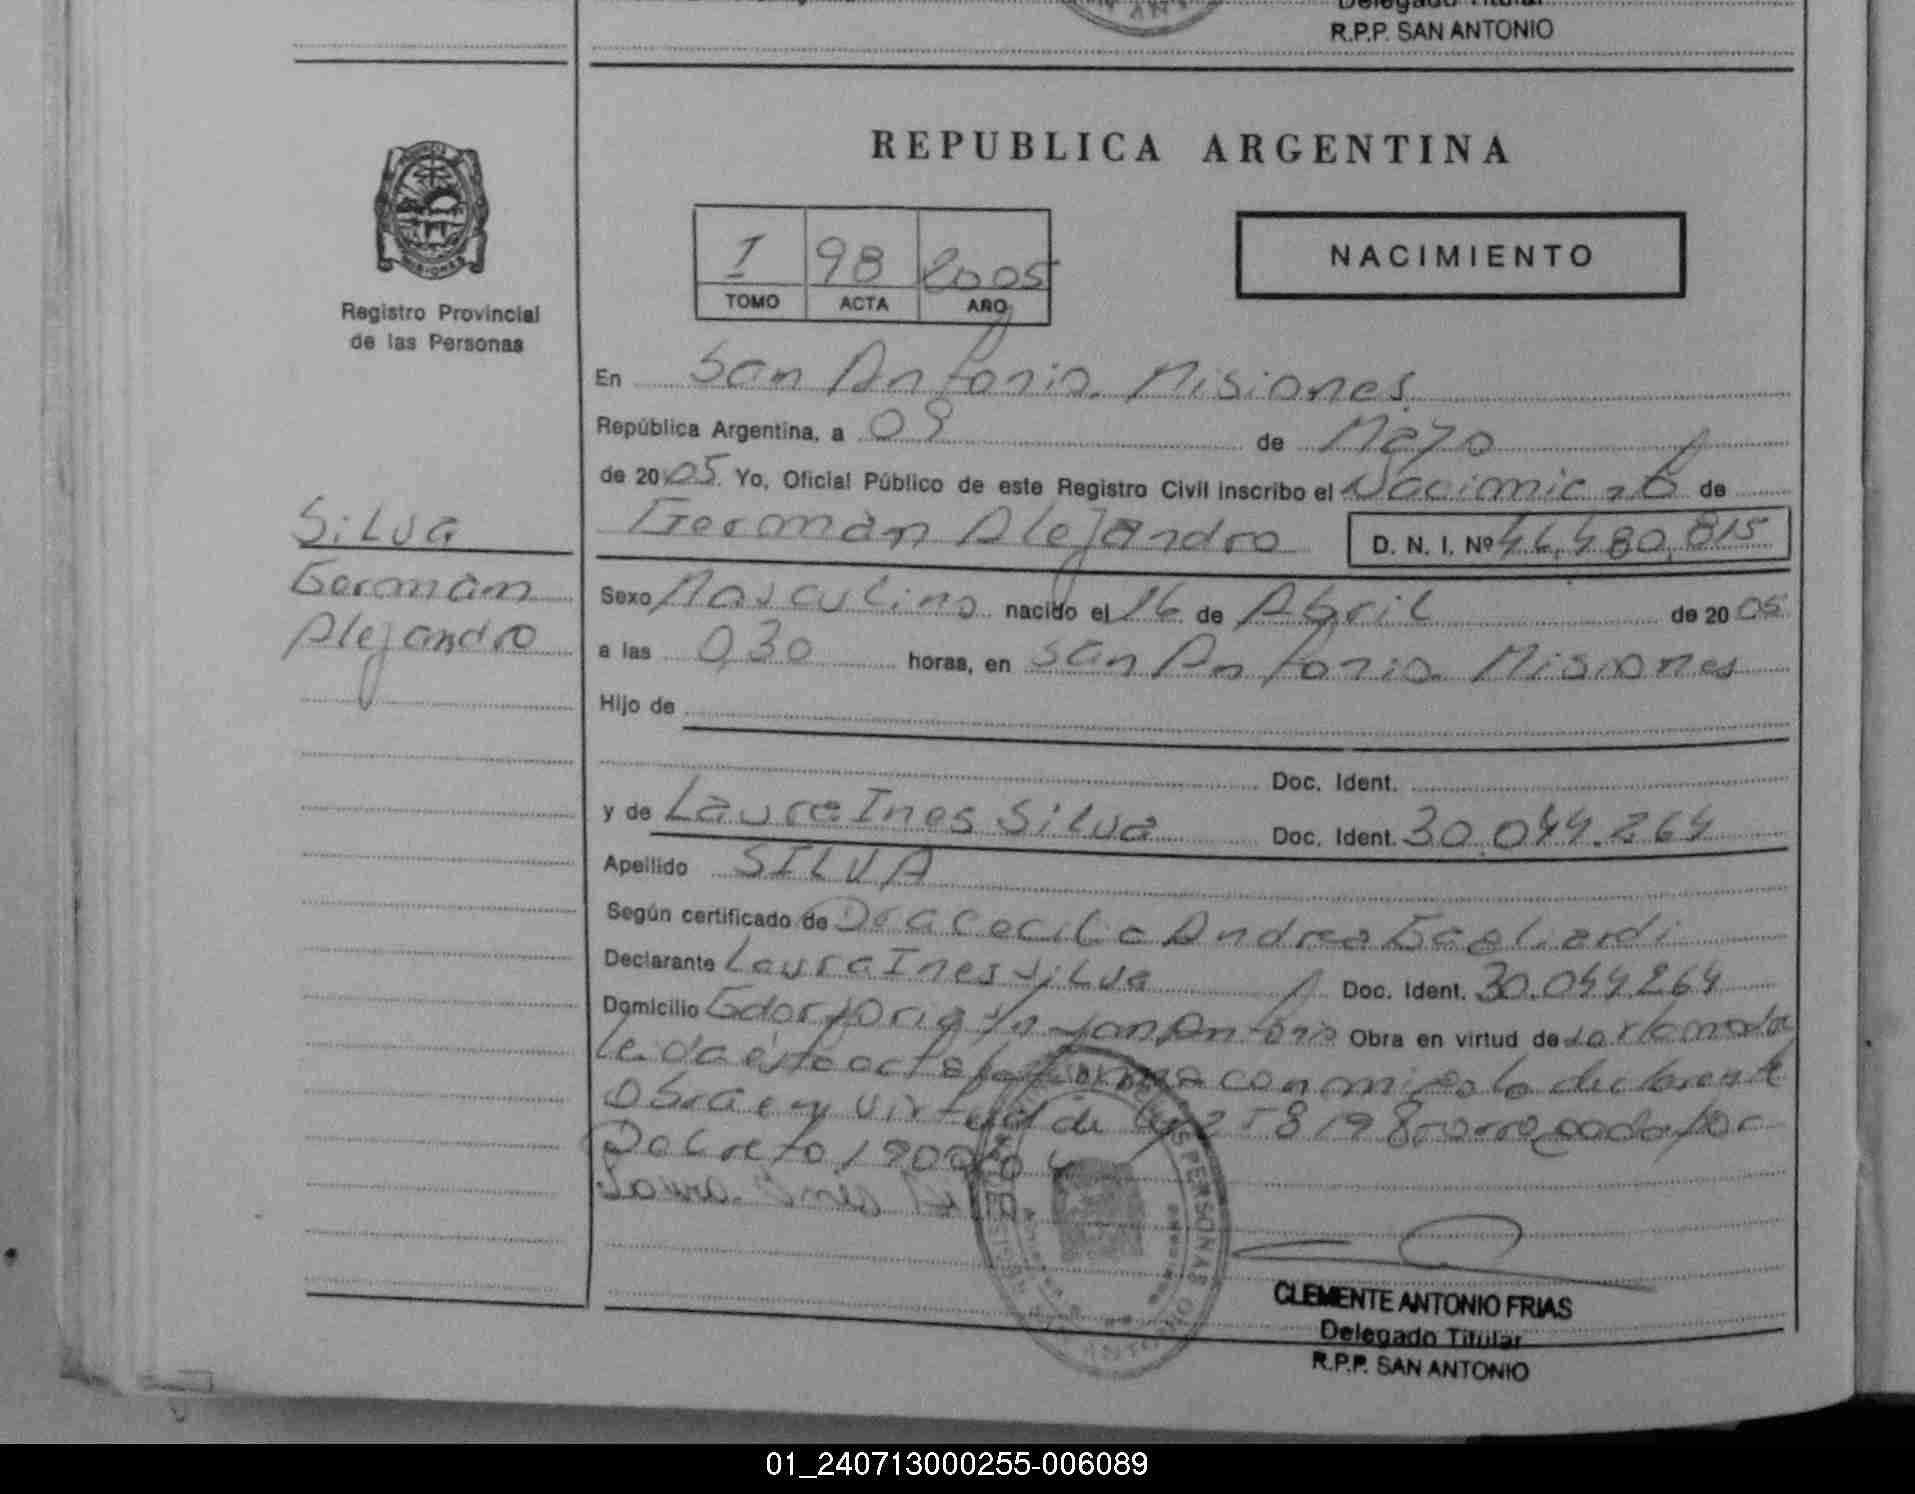 Delegado Titular
R.P.P. SAN ANTONIO
REPUBLICA ARGENTINA
MISIONES
Registro Provincial
de las Personas
I 98 2005
TOMO ACTA AÑO
NACIMIENTO
En San Antonio Misiones
República Argentina, a 09 de Mayo
de 2005 Yo, Oficial Público de este Registro Civil inscribo el Nacimiento de
Germàn Alejandro D. N. I. Nº 46.480.815
Silva
Germàn
Alejandro
Sexo Masculino nacido el 16 de Abril de 2005
a las 0,30 horas, en San Antonio Misiones
Hijo de
Doc. Ident.
y de Laura Ines Silva Doc. Ident. 30.044.264
Apellido SILVA
Según certificado de Dra Cecilia Andrea Gagliardi
Declarante Laura Ines Silva Doc. Ident. 30.044264
Domicilio s/n San Antonio Obra en virtud de
leida èste acta la firma con migo la declarente
Obra en virtud de Ley por
Decreto
Laura Inés
PERSONAS
CLEMENTE ANTONIO FRIAS
Delegado Titular
R.P.P. SAN ANTONIO
01_240713000255-006089